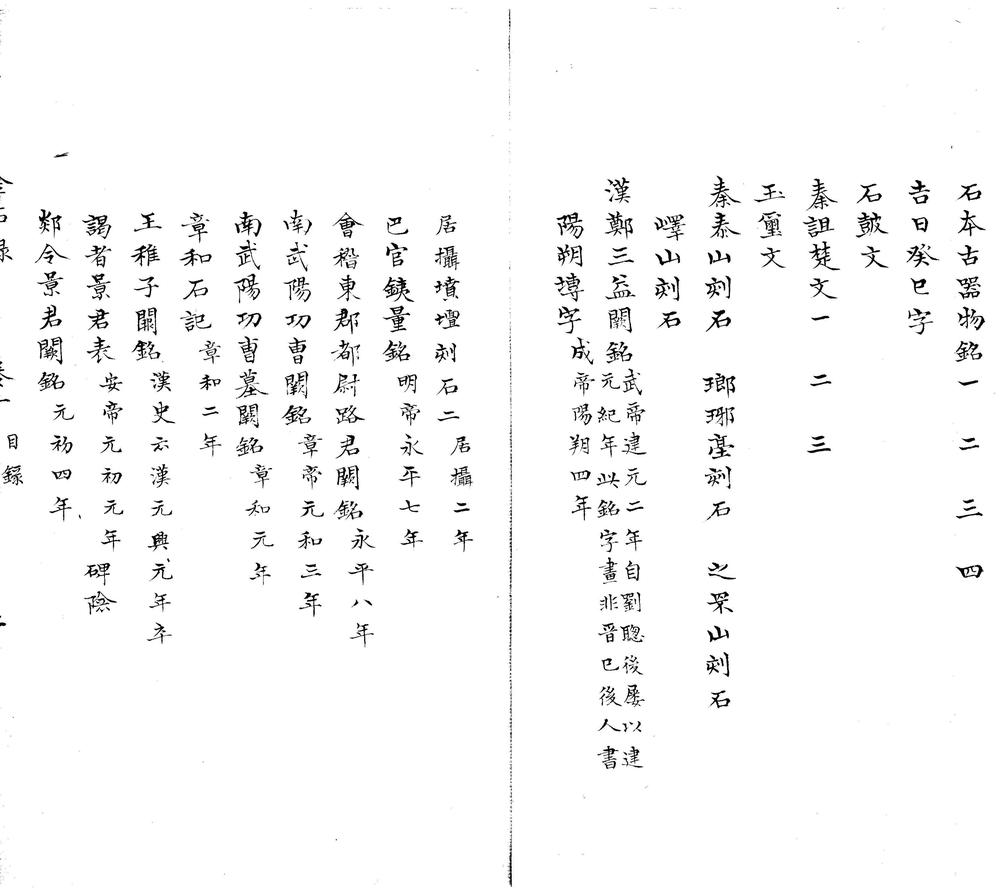 石本古器物銘一 二 三 四
吉日癸巳字
石皷文
秦詛楚文一 二 三
玉璽文
秦泰山刻石 瑯琊臺刻石 之罘山刻石
嶧山刻石
漢鄭三益闕銘武帝建元二年自劉聰後屡以建元紀年此銘字畫非晉已後人書
陽朔塼字成帝陽朔四年
居攝墳壇刻石二居攝二年
巴官鐵量銘明帝永平七年
會稽東郡都尉路君闕銘永平八年
南武陽功曹闕銘章帝元和三年
南武陽功曹墓闕銘章和元年
章和石記章和二年
王稚子闕銘漢史云漢元興元年卒
謁者景君表安帝元初元年 碑陰
郯令景君闕銘元初四年
金石錄 卷一 目錄